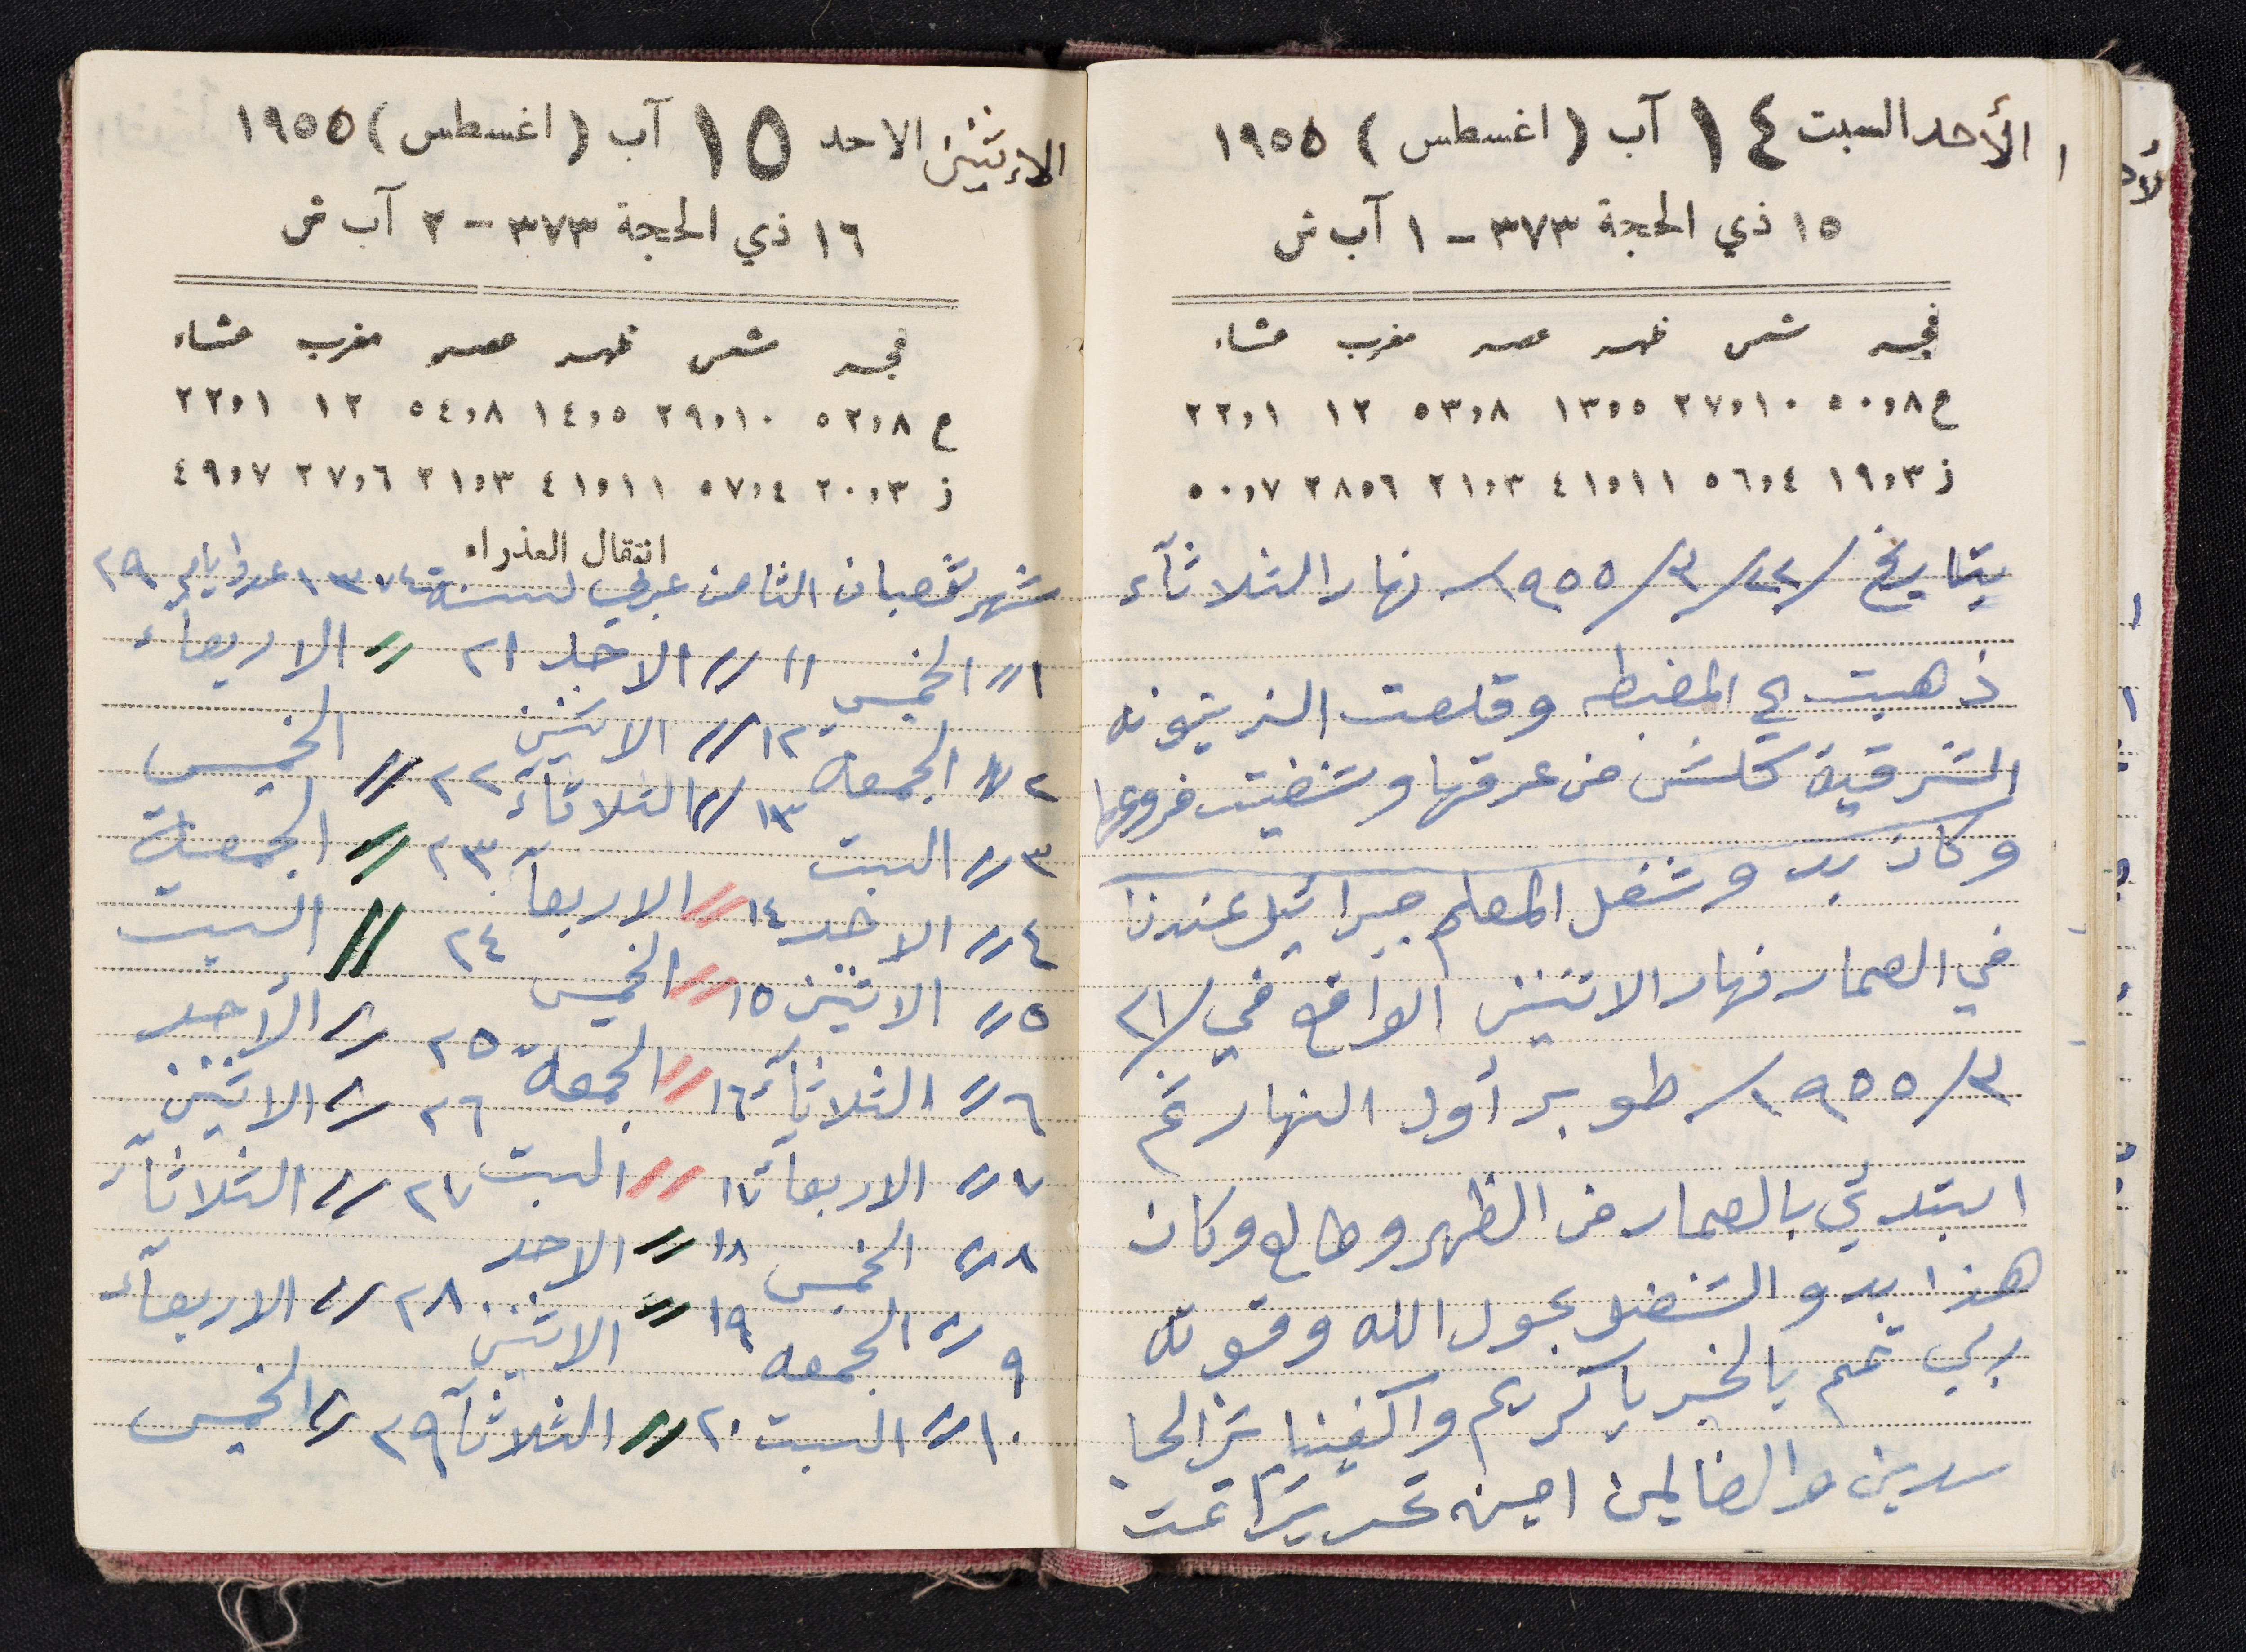 الأحد السبت ١٤ آب (اغسطس) ١٩٥٥
١٥ ذي الحجة ٣٧٣ – ١ آب ش
فجر شمس ظهر عصر مغرب عشاء
ع ٥٠,٨ ٢٧,١٠ ١٣,٥ ٥٣,٨ ١٢ ٢٢,١
ز ١٩,٣ ٥٦,٤ ٤١,١١ ٢١,٣ ٢٨,٦ ٥٠,٧
بتاريخ /٢٢/٣/١٩٥٥/ نهار الثلاثآء
ذهبت الى المضبطه وقلعت الزيتونه
الشرقية كلش من عرقها وشفيت فروعها
وكان بدو شغل المعلم جبرائيل عندنا
في العمار نهار الاثنين الواقع في /٢١
٣/١٩٥٥/ طوبر أول النهار ثم
ابتدئ بالعمار من الظهر وطالع وكان
هذا بدو الشغل بحول الله وقوته
ربي تمم بالخير يا كريم واكفينا شر الحا
سدين والضالمين امين تحريرًا تمت
الاثنين الاحد ١٥ آب (اغسطس) ١٩٥٥
١٦ ذي الحجة ٣٧٣ – ٢ آب ش
فجر شمس ظهر عصر مغرب عشاء
ع ٥٢,٨ ٢٩,١٠ ١٤,٥ ٥٤,٨ ١٢ ٢٢,١
ز ٢٠,٣ ٥٧,٤ ٤١,١١ ٢١,٣ ٢٧,٦ ٤٩,٧
انتقال العذراء
شهر شعبان الثامن عربي لسنة ١٣٧٤ عدد ايام ٢٩
١ // الخميس ١١ // الاحد ٢١ // الاربعآء
٢ // الجمعه ١٢ // الاثنين ٢٢ // الخميس
٣ // السبت ١٣ // الثلاثآء ٢٣ // الجمعة
٤ // الاحد ١٤ // الاربعآ ٢٤ // السبت
٥ // الاثنين ١٥ // الخميس ٢٥ // الأحد
٦ // الثلاثآء ١٦ // الجمعة ٢٦ // الاثنين
٧ // الاربعآء ١٧ // السبت ٢٧ // الثلاثآء
٨ // الخميس ١٨ // الاحد ٢٨ // الاربعآء
٩ // الجمعه ١٩ // الاثنين ٢٩ // الخميس
١٠ // السبت ٢٠ // الثلاثآ